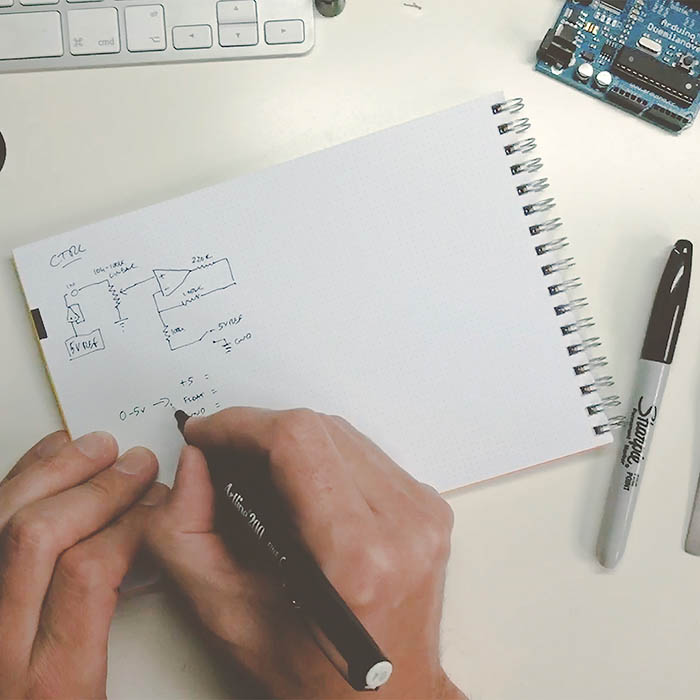 cmd
Arduino
Duemilanove
CTRL
IN
LINEAR
220R
100k
5V REF
100k
5V REF
GND
+5 =
0-5V → FLOAT =
GND =
Artline 200
Sharpie
Permanent Marker
Fine Point